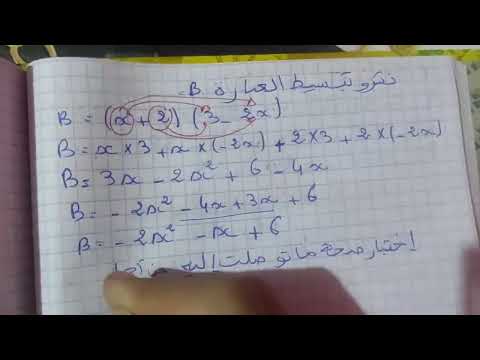 نشر و تبسيط العبارة B.
B = (x + 2) (3 - 2x)
B = x × 3 + x × (-2x) + 2 × 3 + 2 × (-2x)
B = 3x - 2x² + 6 - 4x
B = - 2x² - 4x + 3x + 6
B = - 2x² - x + 6
إختبار صحة ما توصلت إليه من أجل